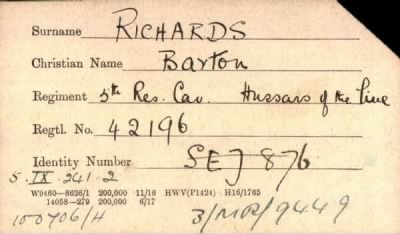 Surname RICHARDS
Christian Name Barton
Regiment 5th Res. Cav. Hussars of the Line
Regtl. No. 42196
Identity Number SEJ 876
5. IX. 241. 2
W9460—8626/1 200,000 11/16 HWV(P1424) H16/1765
14058—279 200,000 6/17
100706/H 3/MR/9449